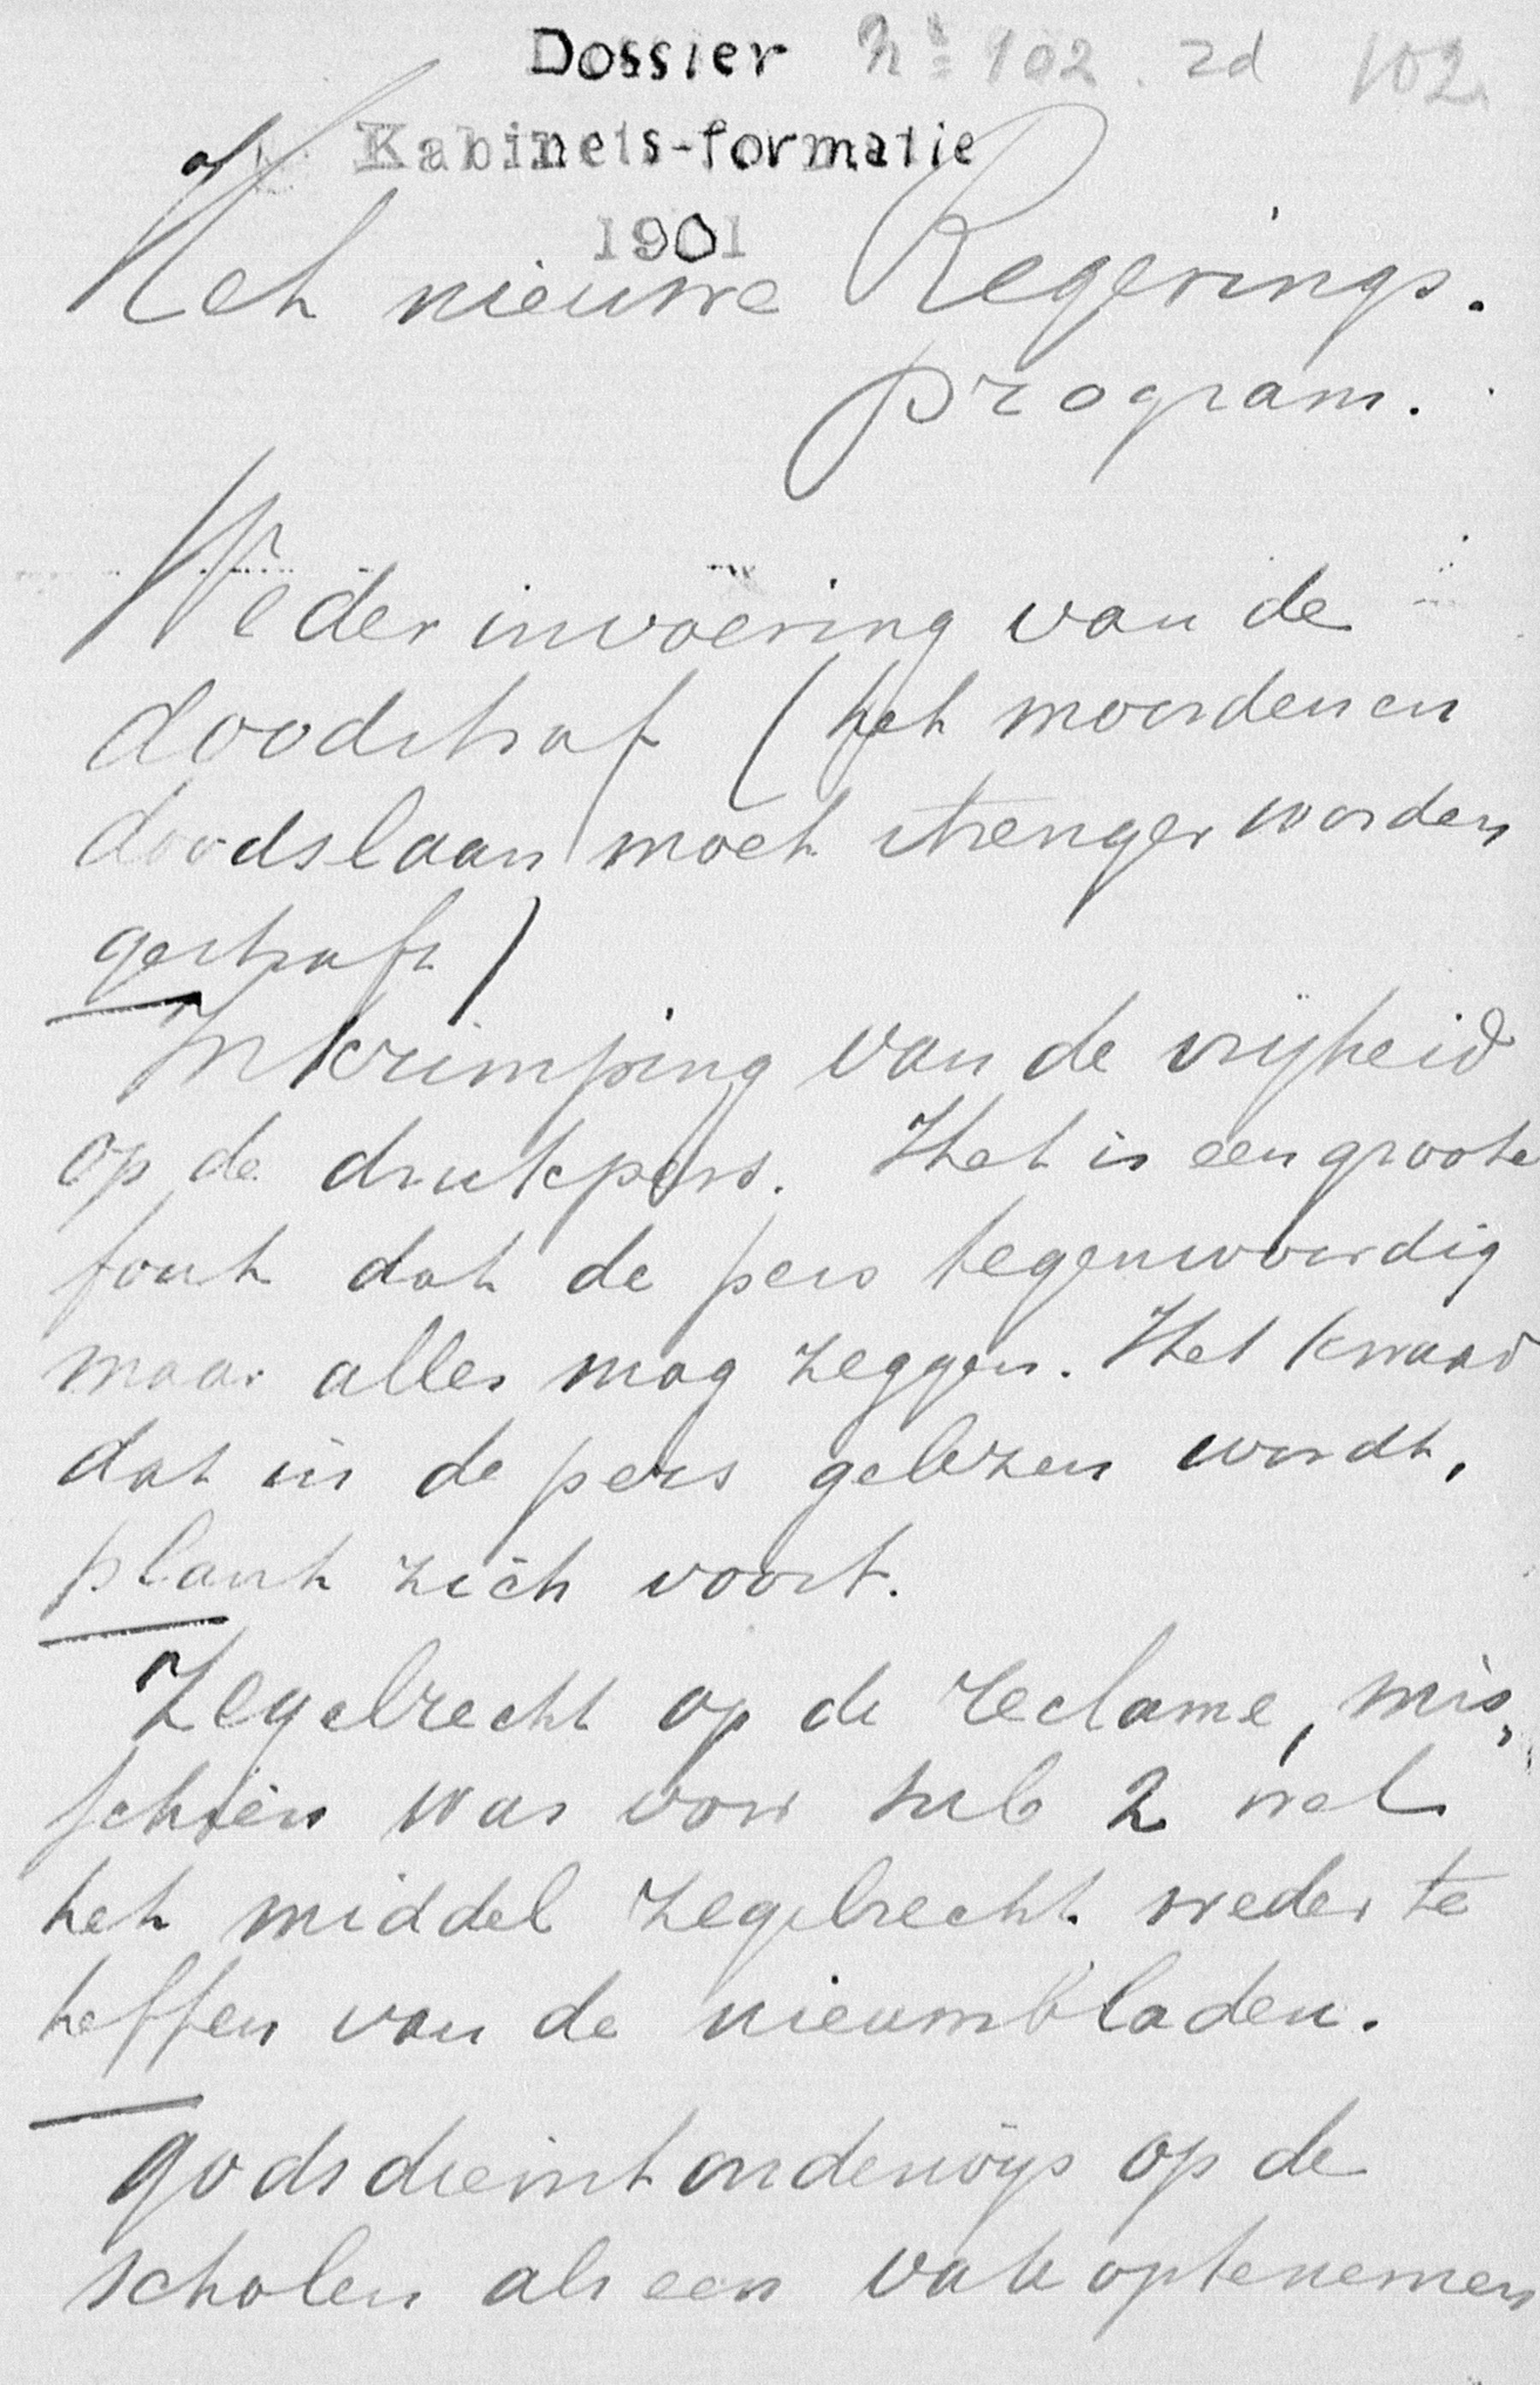 Dossier No 102. zd 102
Kabinets-formatie
1901
Het nieuwe Regerings.
program.
Wederinvoering van de
doodstraf (het moorden en
doodslaan moet strenger worden
gestraft)
Inkrimping van de vrijheid
op de drukpers. Het is een groote
fout dat de pers tegenwoordig
maar alles mag zeggen. Het kwaad
dat in de pers gelezen wordt,
plant zich voort.
Zegelrecht op de reclame, mis„
schien was voor sub 2 wel
het middel zegelrecht weder te
heffen van de nieuwsbladen.
Godsdienstonderwijs op de
scholen als een vak optenemen